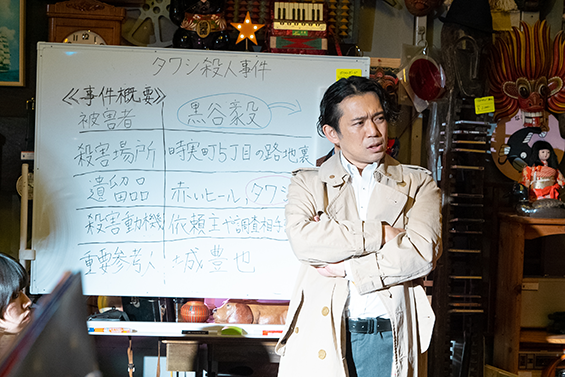 タワシ殺人事件
≪事件概要≫
被害者 黒谷豪毅
殺害場所 時実町5丁目の路地裏
遺留品 赤いヒール,タワシ
殺害動機 依頼主や調査相手
重要参考人 城 豊也